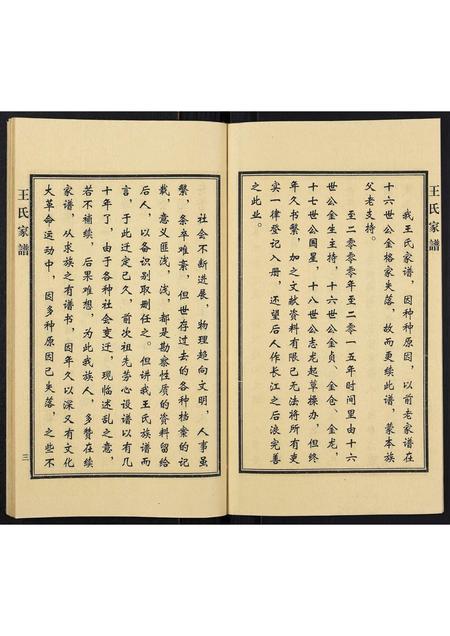 王氏家譜
我王氏家谱，因种种原因，以前老家谱在
十六世公金格家失落，故而更续此谱，蒙本族
父老支持。
至二零零零年至二零一五年时间里由十六
世公金生主持，十六世公金贞、金仓、金龙，
十七世公国星，十八世公志龙起草操办，但终
年久书繁，加之文献资料有限已无法将所有吏
实一律登记入册，还望后人作长江之后浪完善
之此业。
社会不断进展，物理趋向文明，人事虽
繁，条卒难紊，但世存过去的各种档案的记
载，意义匪浅，浅，都是勘察性质的资料留给
后人，以备识别取删任之。但讲我王氏族谱而
言，于此迁定已久，前次祖先劳心设谱以有几
十年了，由于各种社会变迁，现临述乱之意，
若不补续，后果难想，为此我族人，多赞在续
家谱，从求族之有谱书，因年久以深又有文化
大革命运动中，因多种原因已失落，之些不
王氏家譜
三